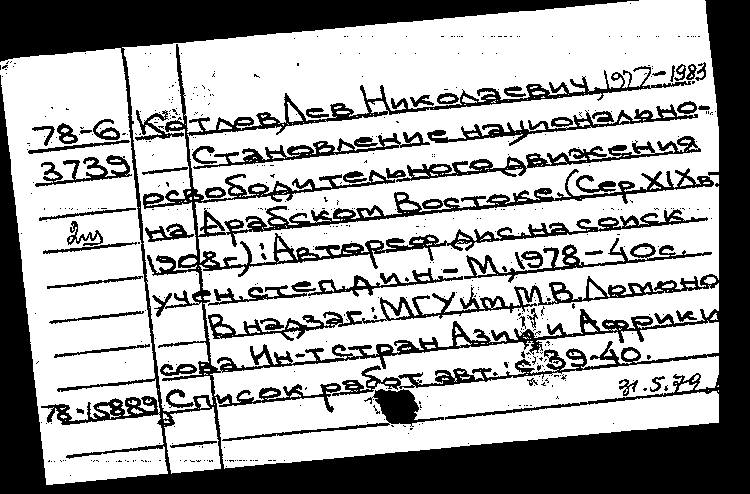 78-6 Котлов, Лев Николаевич, 1917-1983
3739 Становление национально-
освободительного движения
на Арабском Востоке. (Сер. XIX в.-
1908 г.): Автореф. дис. на соиск.
учен. степ. д.и.н. - М., 1978. - 40 с.
В надзаг.: МГУ им. М.В. Ломоно
сова. Ин-т стран Азии и Африки
78-15889 Список работ авт.: с. 39-40.
31.5.79